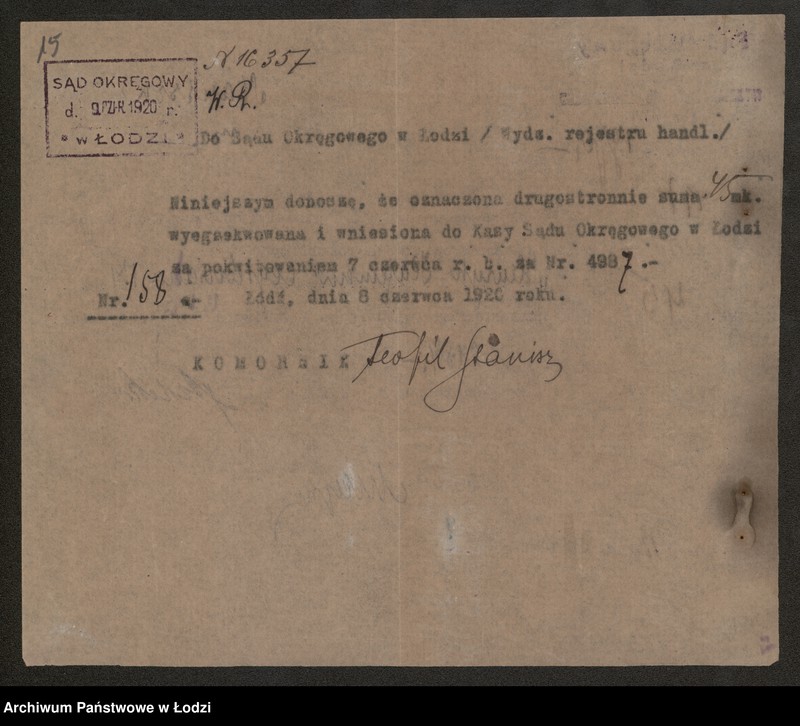 15
N 16357
SĄD OKRĘGOWY
d. CZER. 1920 r.
* w ŁODZI *
W. R.
Do Sądu Okręgowego w Łodzi / Wydz. rejestru handl./
Niniejszym donoszę, że oznaczona drugostronnie suma 45 mk.
wyegzekwowana i wniesiona do Kasy Sądu Okręgowego w Łodzi
za pokwitowaniem 7 czerwca r. b. za Nr. 4987.-
Nr. 158 .- Łódź, dnia 8 czerwca 1920 roku.
KOMORNIK Teofil Stanisz
Archiwum Państwowe w Łodzi